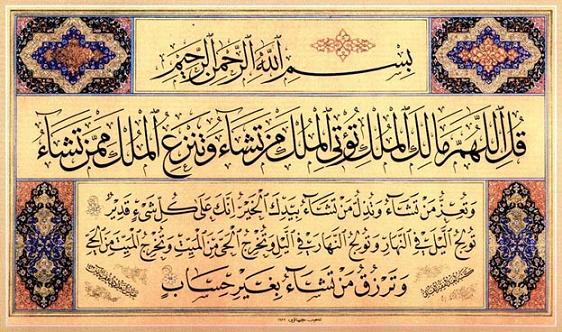 بِسْمِ اللّٰهِ الرَّحْمٰنِ الرَّحِيمِ
قُلِ اللّٰهُمَّ مَالِكَ الْمُلْكِ تُؤْتِي الْمُلْكَ مَنْ تَشَاءُ وَتَنْزِعُ الْمُلْكَ مِمَّنْ تَشَاءُ
وَتُعِزُّ مَنْ تَشَاءُ وَتُذِلُّ مَنْ تَشَاءُ بِيَدِكَ الْخَيْرُ اِنَّكَ عَلٰى كُلِّ شَيْءٍ قَدِيرٌ
تُولِجُ الَّيْلَ فِي النَّهَارِ وَتُولِجُ النَّهَارَ فِي الَّيْلِ وَتُخْرِجُ الْحَيَّ مِنَ الْمَيِّتِ وَتُخْرِجُ الْمَيِّتَ مِنَ الْحَيِّ
وَتَرْزُقُ مَنْ تَشَاءُ بِغَيْرِ حِسَابٍ